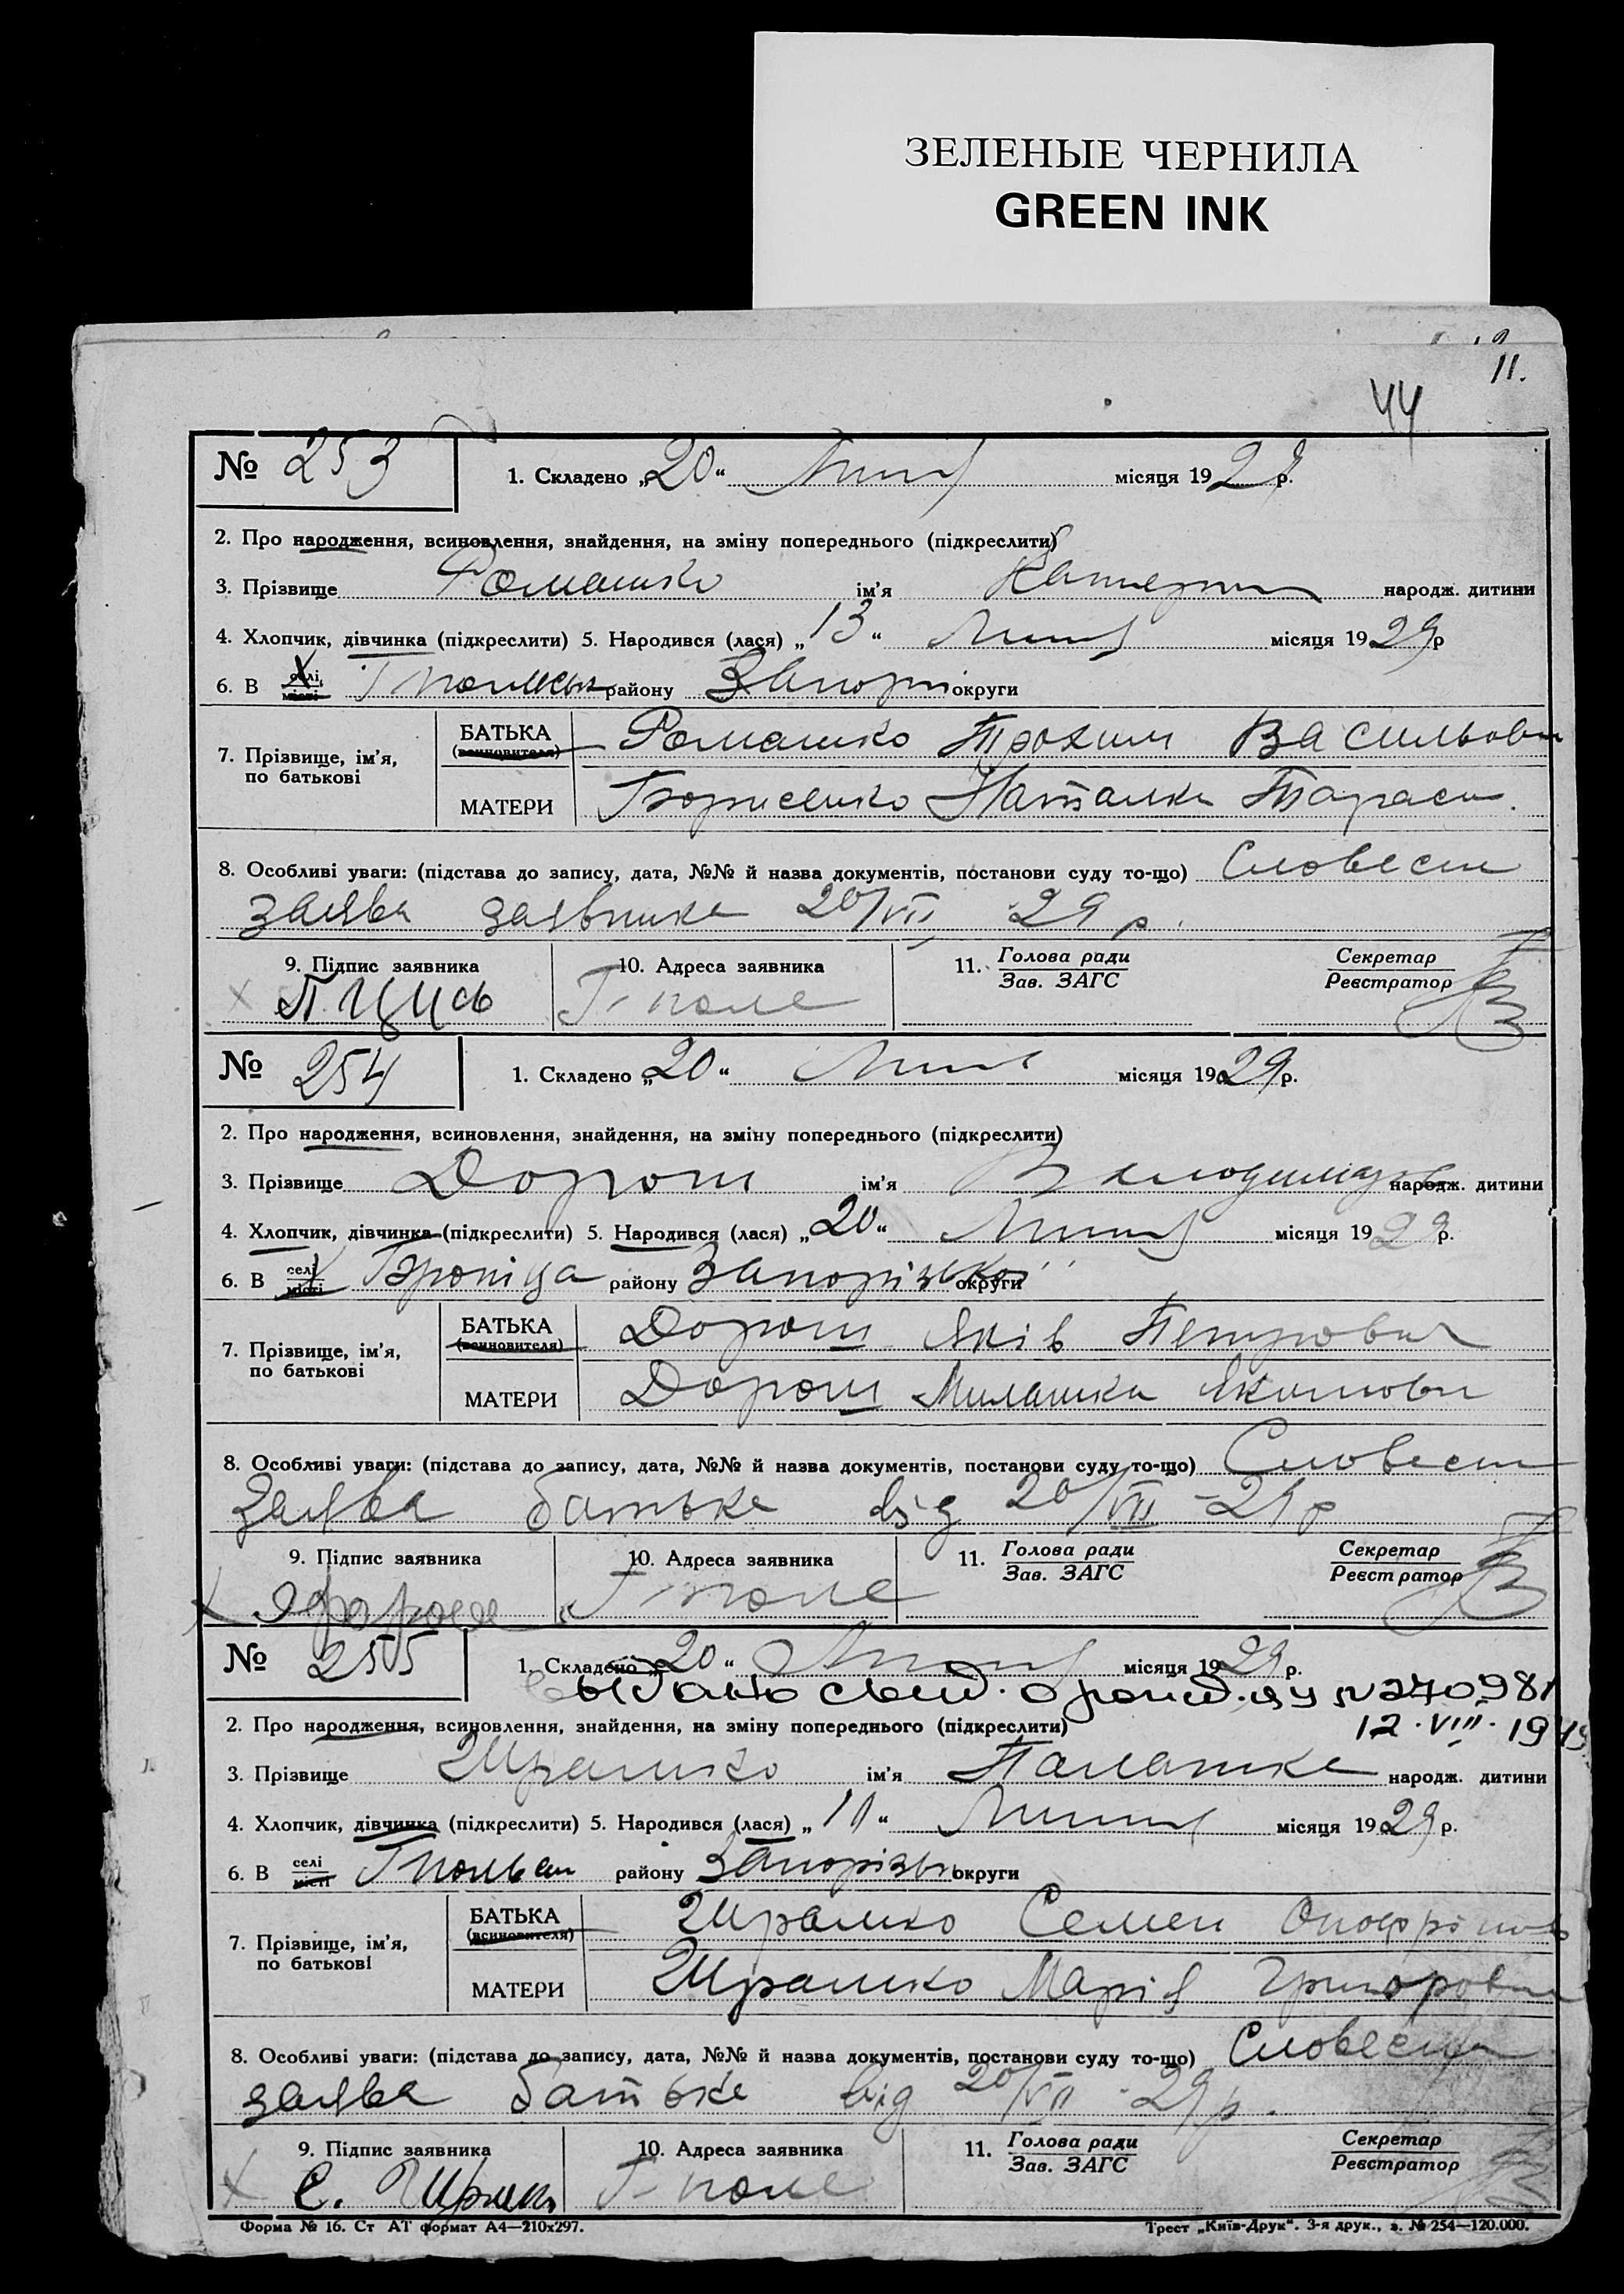 ЗЕЛЕНЫЕ ЧЕРНИЛА
GREEN INK
11.
44
№ 253 1. Складено „20“ Лип місяця 1929 р.
2. Про народження, всиновлення, знайдення, на зміну попереднього (підкреслити)
3. Прізвище Ромашко ім'я Катерин народж. дитини
4. Хлопчик, дівчинка (підкреслити) 5. Народився (лася) „13“ Липня місяця 1929 р
6. В селі, місті району Запоріз округи
7. Прізвище, ім'я, по батькові
БАТЬКА (всиновителя) Ромашко Трохим Васильови
МАТЕРИ Борисенко Наталка Тарасі.
8. Особливі уваги: (підстава до запису, дата, №№ й назва документів, постанови суду то-що) Словесн
заява заявника 20/VII 29 р.
9. Підпис заявника 10. Адреса заявника 11. Голова ради Секретар
Зав. ЗАГС Реєстратор
Г-поле
№ 254 1. Складено „20“ Лип місяця 1929 р.
2. Про народження, всиновлення, знайдення, на зміну попереднього (підкреслити)
3. Прізвище Дорош ім'я Володимир народж. дитини
4. Хлопчик, дівчинка (підкреслити) 5. Народився (лася) „20“ Липня місяця 1929 р.
6. В селі місті району Запорізької округи
7. Прізвище, ім'я, по батькові
БАТЬКА (всиновителя) Дорош Яків Петрович
МАТЕРИ Дорош Милашка Якимовн
8. Особливі уваги: (підстава до запису, дата, №№ й назва документів, постанови суду то-що) Словесн
Заява батька від 20/VII-29 р
9. Підпис заявника 10. Адреса заявника 11. Голова ради Секретар
Зав. ЗАГС Реєстратор
Г-поле
№ 255 1. Складено „20“ Липня місяця 1929 р.
выдано свид. о рожд. яу №270981
12.VIII.
2. Про народження, всиновлення, знайдення, на зміну попереднього (підкреслити)
3. Прізвище Шрамко ім'я Палашка народж. дитини
4. Хлопчик, дівчинка (підкреслити) 5. Народився (лася) „11“ Липня місяця 1929 р.
6. В селі місті району Запорізьк округи
7. Прізвище, ім'я, по батькові
БАТЬКА (всиновителя) Шрамко Семен Онофрінов
МАТЕРИ Шрамко Марія Григоровн
8. Особливі уваги: (підстава до запису, дата, №№ й назва документів, постанови суду то-що) Словесна
заява батька від 20/VII-29 р.
9. Підпис заявника 10. Адреса заявника 11. Голова ради Секретар
Зав. ЗАГС Реєстратор
С. Шрамко Г-поле
Форма № 16. Ст АТ формат А4—210х297. Трест „Київ-Друк“. 3-я друк., з. № 254—120.000.